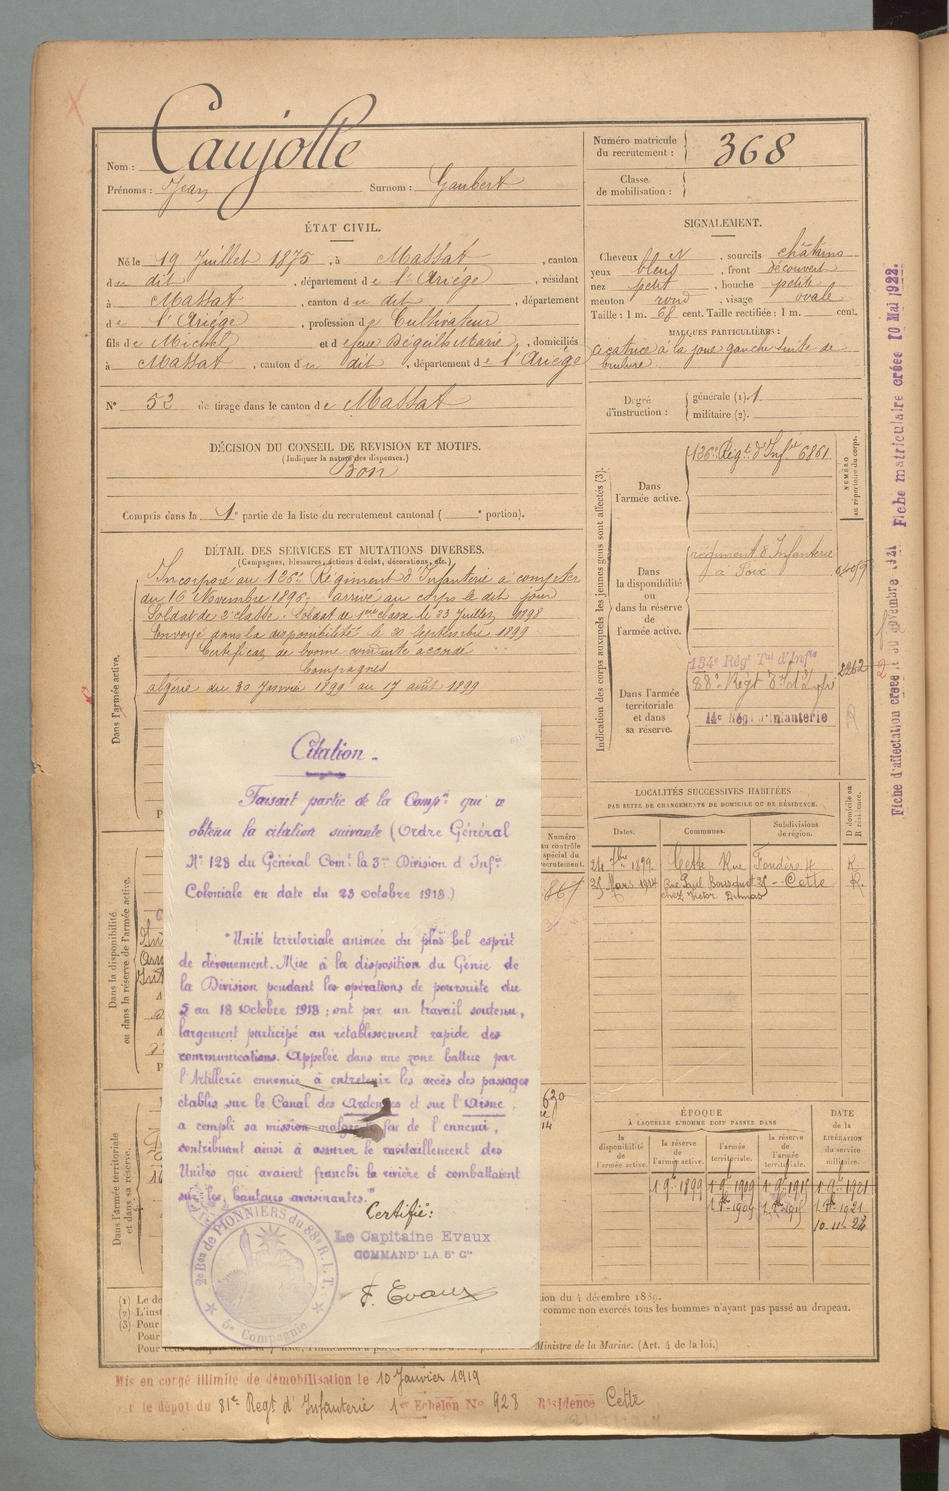 Nom : Caujolle
Prénoms : Jean Surnom : Gaubert
Numéro matricule du recrutement : 368
Classe de mobilisation :
ÉTAT CIVIL.
Né le 19 Juillet 1875, à Massat, canton
du dit, département de l'Ariége, résidant
à Massat, canton du dit, département
de l'Ariége, profession de Cultivateur
fils de Michel et d Marie, domiciliés
à Massat, canton du dit, département de l'Ariége
N° 52 de tirage dans le canton de Massat
SIGNALEMENT.
Cheveux, sourcils châtains
yeux bleus, front découvert
nez petit, bouche petite
menton rond, visage ovale
Taille : 1 m. 68 cent. Taille rectifiée : 1 m. cent.
MARQUES PARTICULIÈRES :
Cicatrice à la joue gauche suite de
brulure
Degré d'instruction : générale (1). 1
militaire (2).
DÉCISION DU CONSEIL DE REVISION ET MOTIFS.
(Indiquer la nature des dispenses.)
Bon
Compris dans la 1e partie de la liste du recrutement cantonal ( e portion).
DÉTAIL DES SERVICES ET MUTATIONS DIVERSES.
(Campagnes, blessures, actions d'éclat, décorations, etc.)
Incorporé au 126e Régiment d'Infanterie à compter
du 16 Novembre 1896. arrivé au corps le dit jour
Soldat de 2e classe. Soldat de 1ere classe le 23 Juillet 1898
Envoyé dans la disponibilité le 20 Septembre 1899
Certificat de bonne conduite accordé
Campagnes
algérie du 30 Janvier 1899 au 17 août 1899
Dans l'armée active.
Dans la disponibilité
ou dans la réserve de l'armée active.
Dans l'armée territoriale
et dans sa réserve.
Indication des corps auxquels les jeunes gens sont affectés (3).
NUMÉRO
au répertoire du corps.
Dans l'armée active.
126e Régt d'Infie 6861
Dans la disponibilité ou dans la réserve de l'armée active.
régiment d'Infanterie
à Foix
Dans l'armée territoriale et dans sa réserve.
134e Régt Tal d'Infie
2262
88e Régt
14e Régt d'Infanterie
Citation.
Faisait partie de la Compie qui a
obtenu la citation suivante (Ordre Général
N° 128 du Général Comt la 3me Division d'Infie
Coloniale en date du 23 octobre 1918.)
"Unité territoriale animée du plus bel esprit
de dévouement. Mise à la disposition du Génie de
la Division pendant les opérations de poursuite du
5 au 18 octobre 1918 ; ont par un travail soutenu,
largement participé au rétablissement rapide des
communications. Appelée dans une zone battue par
l'Artillerie ennemie à entretenir les accès des passages
établis sur le Canal des Ardennes et sur l'Aisne,
a rempli sa mission malgré le feu de l'ennemi,
contribuant ainsi à assurer le ravitaillement des
Unités qui avaient franchi la rivière et combattaient
sur les hauteurs avoisinantes."
Certifié :
Le Capitaine Evaux
COMMANDt LA 5e Cie
F. Evaux
2e Bon de PIONNIERS du 88e R.I.T.
5e Compagnie
LOCALITÉS SUCCESSIVES HABITÉES
PAR SUITE DE CHANGEMENTS DE DOMICILE OU DE RÉSIDENCE.
Dates. Communes. Subdivisions de région. D domicile ou R résidence.
24 7bre 1899 Cette Rue Fondère 4 R.
25 Mars 1914 Rue Paul Bousquet 25 - Cette R.
chez Victor Dumas
Numéro
au contrôle
spécial du
recrutement.
867
ÉPOQUE
À LAQUELLE L'HOMME DOIT PASSER DANS
la disponibilité de l'armée active.
la réserve de l'armée active.
l'armée territoriale.
la réserve de l'armée territoriale.
DATE de la LIBÉRATION du service militaire.
1 9bre 1899 1 9bre 1909 1 9bre 1915 1 9bre 1921
1 8bre 1909 1 8bre 1915 1 8bre 1921
10-11-24
(1) Le de
(2) L'inst
(3) Pour
Pour ce
ion du 4 décembre 1889.
comme non exercés tous les hommes n'ayant pas passé au drapeau.
Ministre de la Marine. (Art. 4 de la loi.)
Mis en congé illimité de démobilisation le 10 Janvier 1919
le dépôt du 81e Regt d'Infanterie 1er Echelon N° 928 Résidence Cette
Fiche matriculaire créée 10 Mai 1922.
Fiche d'affectation créée